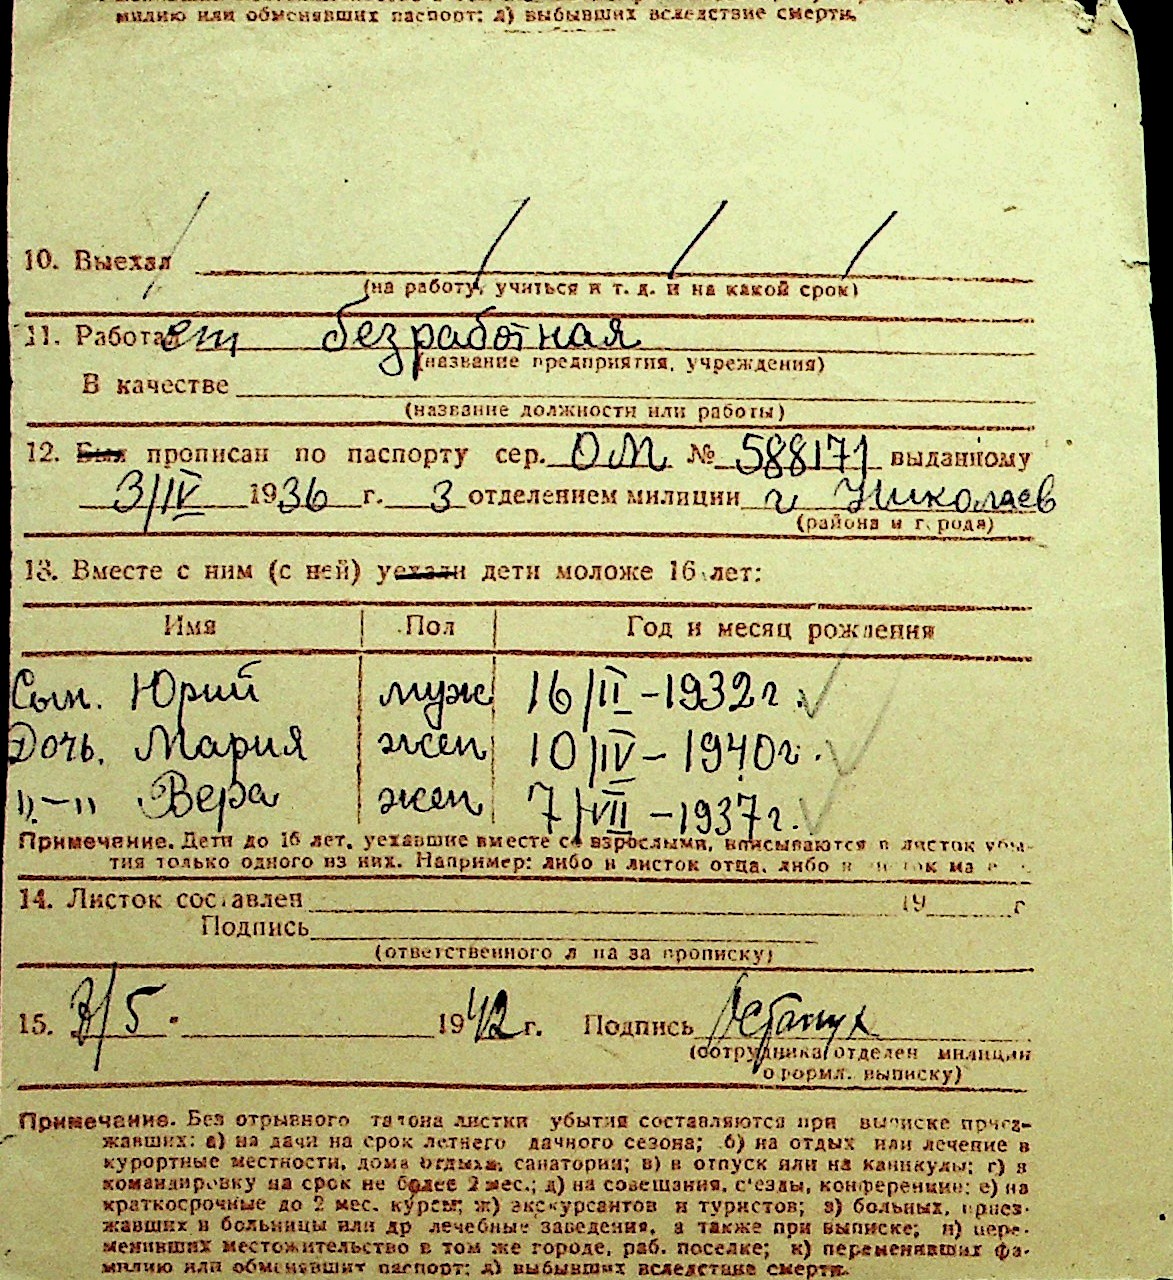 милию или обменявших паспорт; л) выбывших вследствие смерти.
10. Выехал
(на работу, учиться и т. д. и на какой срок)
11. Работает безработная
(название предприятия, учреждения)
В качестве
(название должности или работы)
12. Был прописан по паспорту сер. ОМ № 588171 выданному
3/IV 1936 г. 3 отделением милиции г Николаев
(района и города)
13. Вместе с ним (с ней) уехали дети моложе 16 лет:
Имя Пол Год и месяц рождения
Сын. Юрий муж 16/II-1932г.
Дочь. Мария жен 10/IV-1940г.
"-" Вера жен 7/VII-1937г.
Примечание. Дети до 16 лет, уехавшие вместе со взрослыми, вписываются в листок убы-
тия только одного из них. Например: либо в листок отца, либо в листок ма
14. Листок составлен 19 г
Подпись
(ответственного лица за прописку)
15. /5. 1942г. Подпись
(сотрудника отделен милиции
оформл. выписку)
Примечание. Без отрывного талона листки убытия составляются при выписке приез-
жавших: а) на дачи на срок летнего дачного сезона; б) на отдых или лечение в
курортные местности, дома отдыха, санатории; в) в отпуск или на каникулы; г) в
командировку на срок не более 2 мес.; д) на совещания, с'езды, конференции; е) на
краткосрочные до 2 мес. курсы; ж) экскурсантов и туристов; з) больных, приез-
жавших в больницы или др лечебные заведения, а также при выписке; и) пере-
менивших местожительство в том же городе, раб. поселке; к) переменивших фа-
милию или обменявшит паспорт; л) выбывших вследствие смерти.